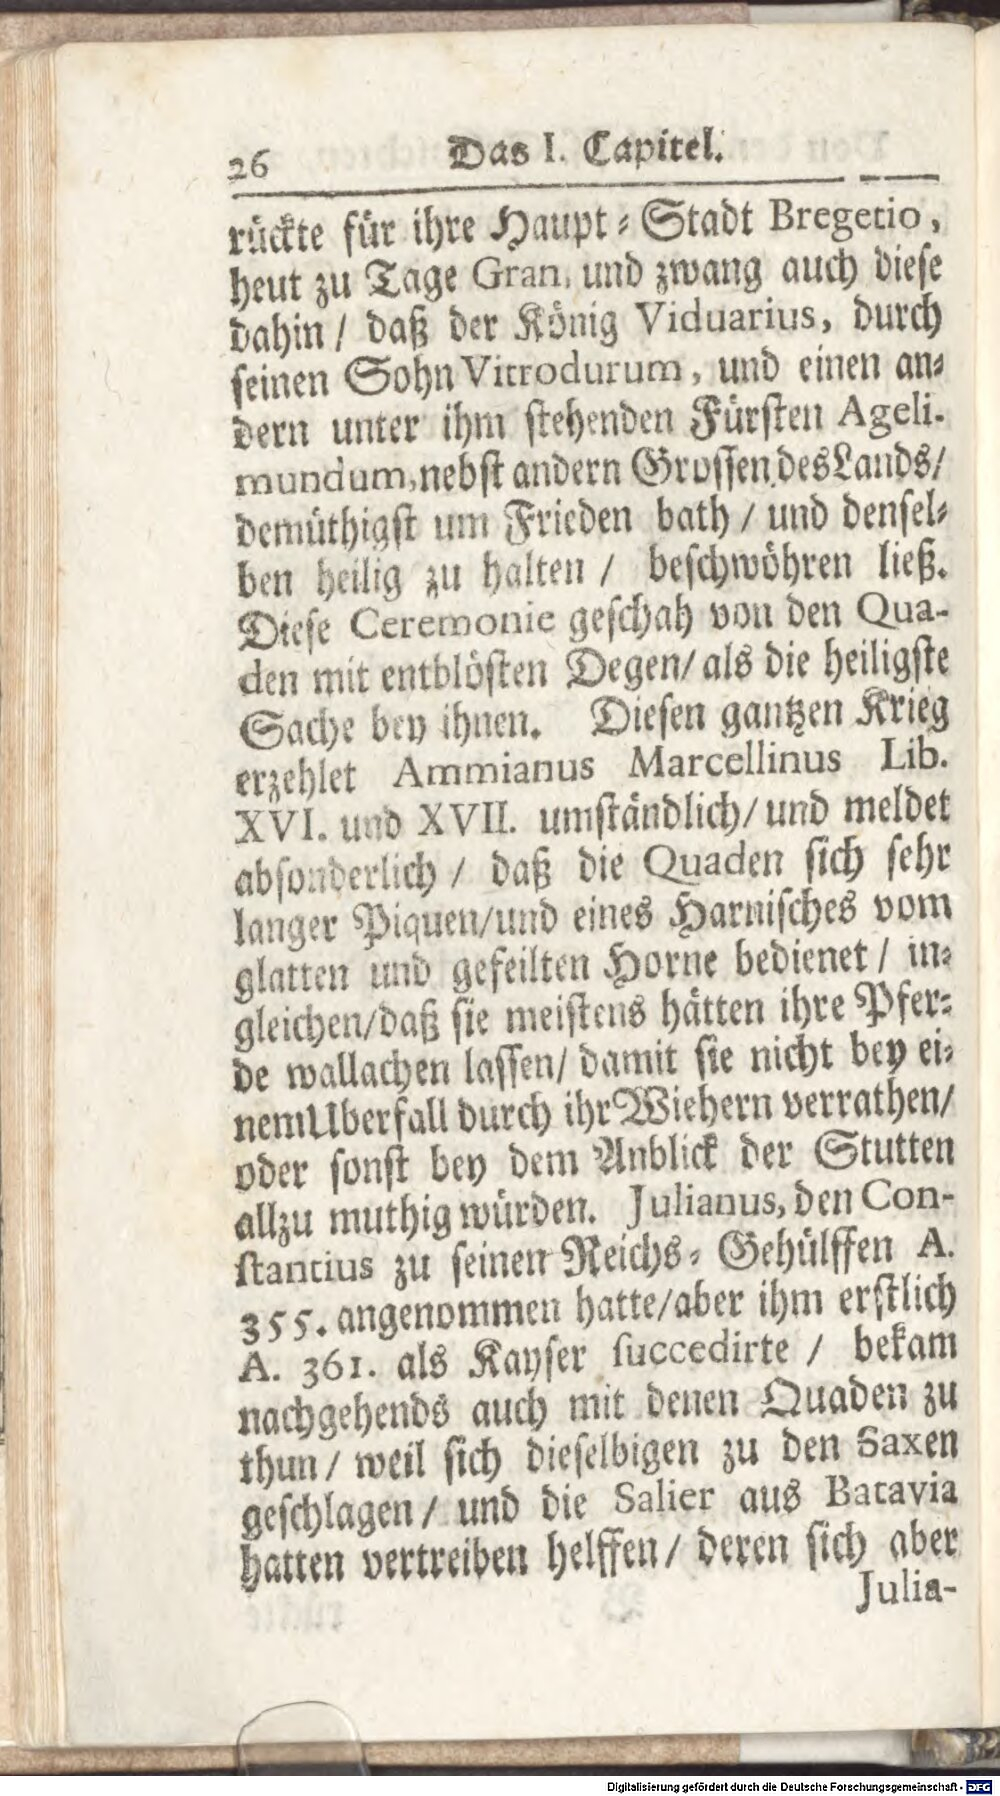 26 Das I. Capitel.
rückte für ihre Haupt-Stadt Bregetio,
heut zu Tage Gran, und zwang auch diese
dahin/ daß der König Viduarius, durch
seinen Sohn Vitrodurum, und einen an-
dern unter ihm stehenden Fürsten Ageli-
mundum, nebst andern Grossen des Lands/
demüthigst um Frieden bath/ und densel-
ben heilig zu halten/ beschwöhren ließ.
Diese Ceremonie geschah von den Qua-
den mit entblösten Degen/ als die heiligste
Sache bey ihnen. Diesen gantzen Krieg
erzehlet Ammianus Marcellinus Lib.
XVI. und XVII. umständlich/ und meldet
absonderlich/ daß die Quaden sich sehr
langer Piquen/ und eines Harnisches vom
glatten und gefeilten Horne bedienet/ in-
gleichen/ daß sie meistens hätten ihre Pfer-
de wallachen lassen/ damit sie nicht bey ei-
nem Uberfall durch ihr Wiehern verrathen/
oder sonst bey dem Anblick der Stutten
allzu muthig würden. Julianus, den Con-
stantius zu seinen Reichs-Gehülffen A.
355. angenommen hatte/ aber ihm erstlich
A. 361. als Kayser succedirte/ bekam
nachgehends auch mit denen Quaden zu
thun/ weil sich dieselbigen zu den Saxen
geschlagen/ und die Salier aus Batavia
hatten vertreiben helffen/ deren sich aber
Julia-
Digitalisierung gefördert durch die Deutsche Forschungsgemeinschaft - DFG